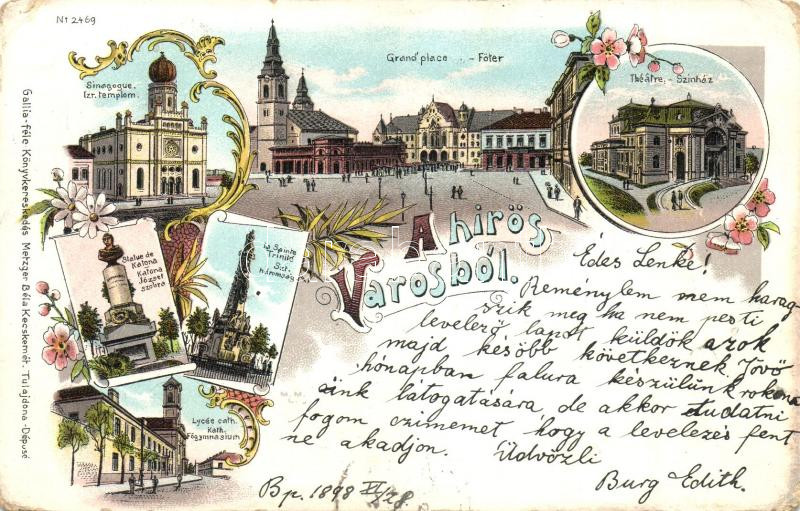 Nr 2469
Sinagogue.
Izr. templom.
Grand' place - Főter
Théâtre. - Szinház
Statue de
Katona
Katona
József
szobra
la Sainte
Trinité
Szt
háromság
A hirös
Városból.
Lycée cath.
Kath.
Főgymnasium
Gallia-féle Könyvkereskedés Metzger Béla Kecskemét. Tulajdona-Déposé
Édes Lenke!
Reménylem nem harag
szik meg ha nem pesti
levelező lapot küldök azok
majd később következnek. Jövő
hónapban falura készülünk rokona
ink látogatására, de akkor tudatni
fogom czimemet hogy a levelezés fent
ne akadjon. Üdvözli
Burg Edith.
Bp. 1898 VI/28.